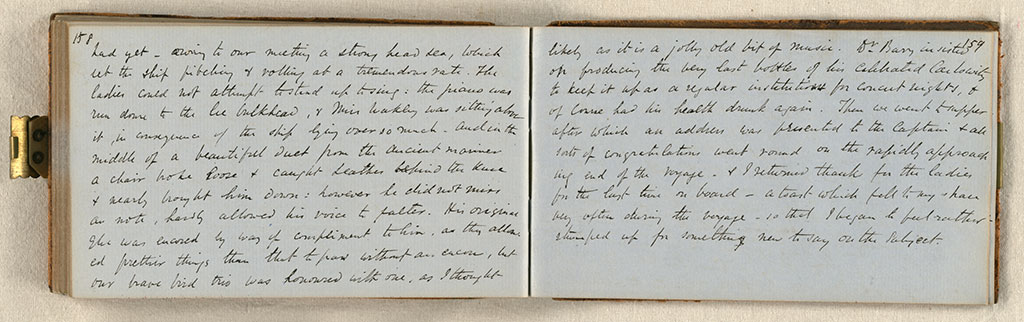 158
had yet - owing to our meeting a strong head sea, which
set the ship pitching & rolling at a tremendous rate. The
ladies could not attempt to stand up to sing: the piano was
run down to the lee bulkhead, & Miss Oakley was sitting above
it, in consequence of the ship lying over so much. And in the
middle of a beautiful duet from the ancient mariner
a chair broke loose & caught behind the knee
& nearly brought him down: however he did not miss
a note, hardly allowed his voice to falter. His original
glee was encored by way of compliment to him, as they allow
ed prettier things than that to pass without an encore, but
our brave bird trio was honoured with one, as I thought
159
likely as it is a jolly old bit of music. Dr Barry insisted
on producing the very last bottles of his celebrated Carlowitz
to keep it up as a regular institution for concert nights, &
of course had his health drunk again. Then we went to supper
after which an address was presented to the Captain & all
sorts of congratulations went round on the rapidly approach
ing end of the voyage. & I returned thanks for the ladies
for the last time on board - a toast which fell to my share
very often during the voyage - so that I began to feel rather
stumped up for something new to say on the subject -